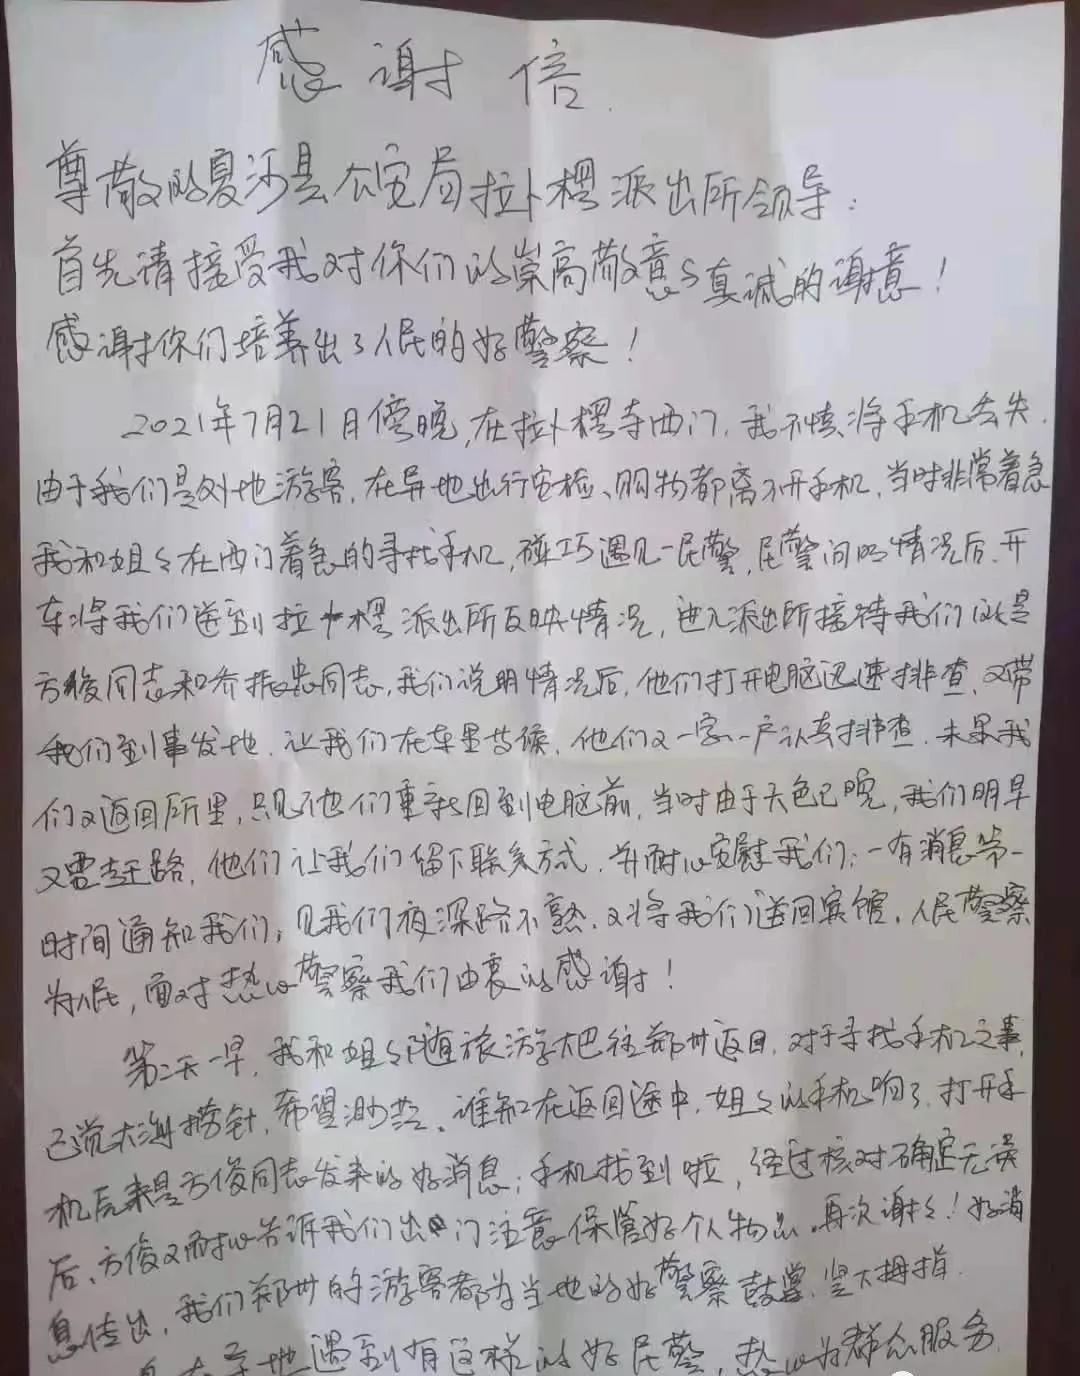 感谢信
尊敬的夏河县公安局拉卜楞派出所领导：
首先请接受我对你们的崇高敬意与真诚的谢意！
感谢你们培养出了人民的好警察！
2021年7月21日傍晚，在拉卜楞寺西门，我不慎将手机丢失．
由于我们是外地游客，在异地出行安检、购物都离不开手机，当时非常着急
我和姐々在西门着急的寻找手机，碰巧遇见一民警，民警问明情况后，开
车将我们送到拉卜楞派出所反映情况，进入派出所接待我们的是
方俊同志和乔振忠同志，我们说明情况后，他们打开电脑迅速排查，又带
我们到事发地，让我们在车里等候，他们又一家一户认真排查，未果我
们又返回所里，只见他们重新回到电脑前，当时由于天色已晚，我们明早
又要赶路，他们让我们留下联系方式，并耐心安慰我们；一有消息第一
时间通知我们，见我们夜深路不熟，又将我们送回宾馆，人民警察
为人民，面对热心警察我们由衷的感谢！
第二天一早，我和姐々随旅游大巴往郑州返回，对于寻找手机之事，
已觉大海捞针，希望渺茫、谁知在返回途中，姐々的手机响了，打开手
机后来是方俊同志发来的好消息；手机找到啦，经过核对确定无误
后、方俊又耐心告诉我们出门注意保管好个人物品，再次谢々！好消
息传出，我们郑州的游客都为当地的好警察鼓掌，竖大拇指．
地遇到有这样的好民警，热心为群众服务，